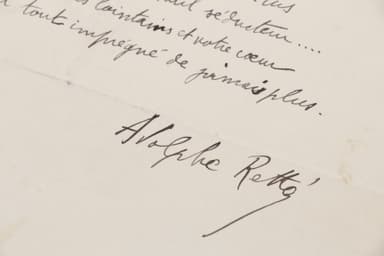 séducteur....
lointains et votre cœur
tout imprégné de jamais plus.
Adolphe Retté